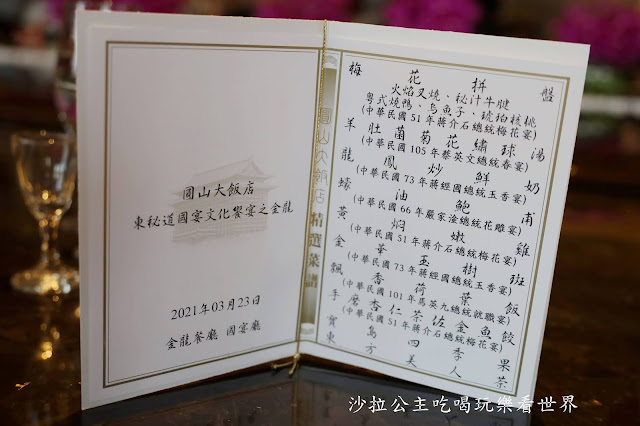 圓山大飯店
東秘道國宴文化饗宴之金龍
2021年03月23日
金龍餐廳 國宴廳
圓山大飯店 精選菜譜
梅花拼盤
火焰叉燒、秘汁牛腱
粵式燒鴨、烏魚子、琥珀核桃
(中華民國51年蔣介石總統梅花宴)
羊肚菌菊花繡球湯
(中華民國105年蔡英文總統春宴)
龍鳳炒鮮奶
(中華民國73年蔣經國總統玉香宴)
蠔油鮑甫
(中華民國66年嚴家淦總統花雕宴)
黃焖嫩雞
(中華民國51年蔣介石總統梅花宴)
金華玉樹班
(中華民國73年蔣經國總統玉香宴)
飄香荷葉飯
(中華民國101年馬英九總統就職宴)
手磨杏仁茶佐金魚餃
(中華民國51年蔣介石總統梅花宴)
寶島四季果
東方美人茶
沙拉公主吃喝玩樂看世界